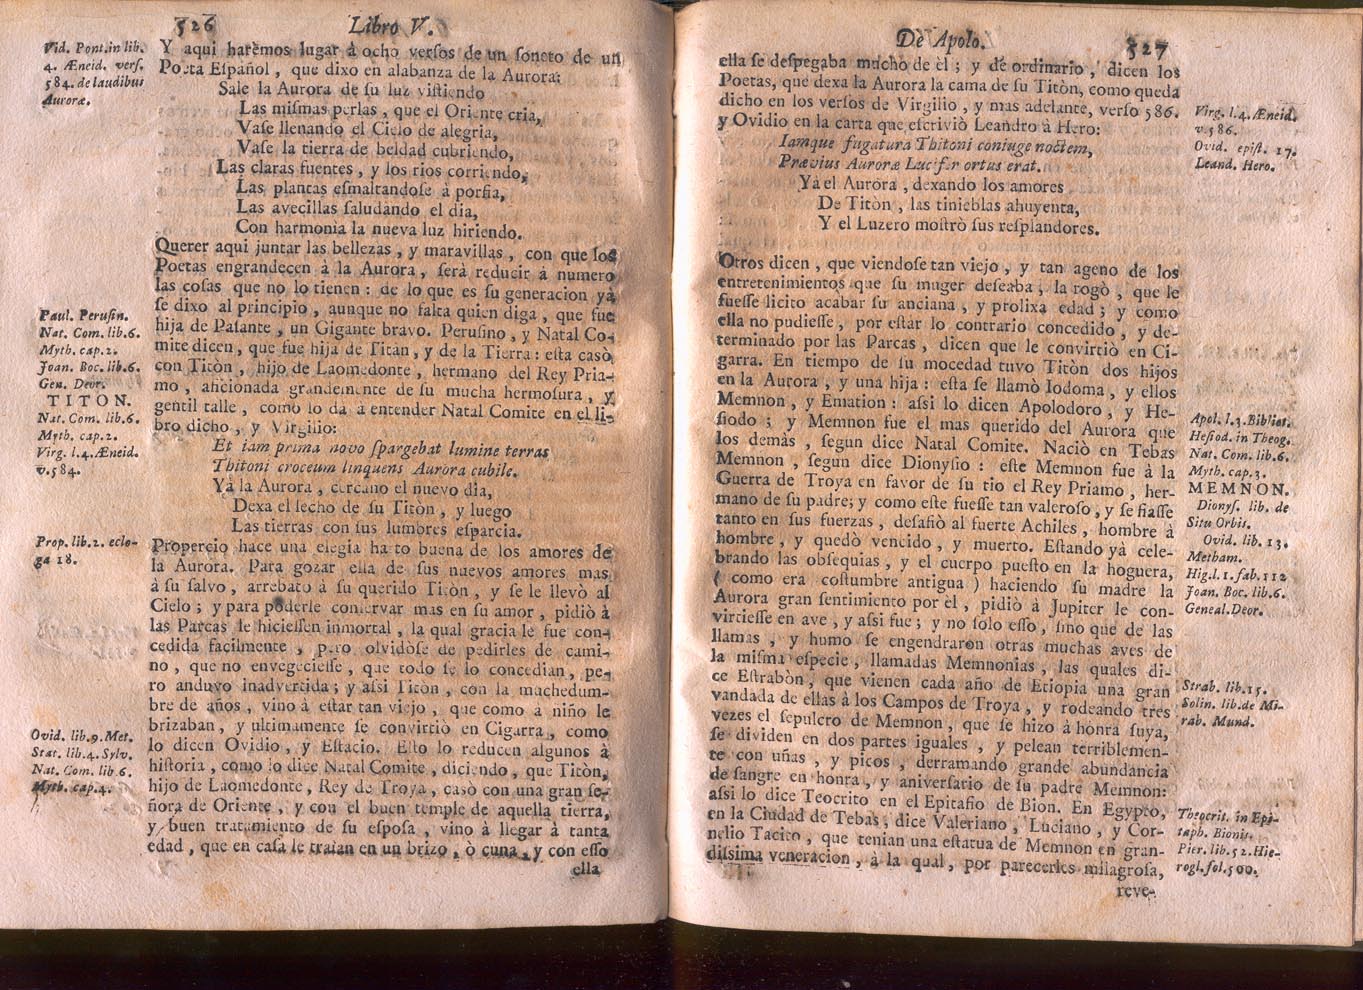 526 Libro V.
Vid. Pont. in lib.
4. Æneid. vers.
584. de laudibus
Auroræ.
Y aqui harèmos lugar à ocho versos de un soneto de un
Poeta Español, que dixo en alabanza de la Aurora:
Sale la Aurora de su luz vistiendo
Las mismas perlas, que el Oriente cria,
Vase llenando el Cielo de alegria,
Vase la tierra de beldad cubriendo,
Las claras fuentes, y los rios corriendo,
Las plantas esmaltandose à porfia,
Las avecillas saludando el dia,
Con harmonia la nueva luz hiriendo.
Querer aqui juntar las bellezas, y maravillas, con que los
Poetas engrandecen à la Aurora, serà reducir à numero
las cosas que no lo tienen: de lo que es su generacion yà
se dixo al principio, aunque no falta quien diga, que fue
hija de Palante, un Gigante bravo. Perusino, y Natal Co-
mite dicen, que fue hija de Titan, y de la Tierra: esta casò
con Titòn, hijo de Laomedonte, hermano del Rey Pria-
mo, aficionada grandemente de su mucha hermosura, y
gentil talle, como lo dà à entender Natal Comite en el li-
bro dicho, y Virgilio:
Paul. Perusin.
Nat. Com. lib. 6.
Myth. cap. 2.
Joan. Boc. lib. 6.
Gen. Deor.
TITON.
Nat. Com. lib. 6.
Myth. cap. 2.
Virg. l. 4. Æneid.
v. 584.
Et iam prima novo spargebat lumine terras
Thitoni croceum linquens Aurora cubile.
Yà la Aurora, cercano el nuevo dia,
Dexa el lecho de su Titòn, y luego
Las tierras con sus lumbres esparcia.
Prop. lib. 2. eclo-
ga 18.
Propercio hace una elegia harto buena de los amores de
la Aurora. Para gozar ella de sus nuevos amores mas
à su salvo, arrebatò à su querido Titòn, y se le llevò al
Cielo; y para poderle conservar mas en su amor, pidiò à
las Parcas le hiciessen inmortal, la qual gracia le fue con-
cedida facilmente, pero olvidòse de pedirles de cami-
no, que no envegeciesse, que todo se lo concedian, pe-
ro anduvo inadvertida; y assi Titòn, con la muchedum-
bre de años, vino à estar tan viejo, que como à niño le
brizaban, y ultimamente se convirtiò en Cigarra, como
lo dicen Ovidio, y Estacio. Esto lo reducen algunos à
historia, como lo dice Natal Comite, diciendo, que Titòn,
hijo de Laomedonte, Rey de Troya, casò con una gran se-
ñora de Oriente, y con el buen temple de aquella tierra,
y buen tratamiento de su esposa, vino à llegar à tanta
edad, que en casa le traìan en un brizo, ò cuna, y con esso
Ovid. lib. 9. Met.
Stat. lib. 4. Sylv.
Nat. Com. lib. 6.
Myth. cap. 4.
ella
De Apolo. 527
ella se despegaba mucho de èl; y de ordinario, dicen los
Poetas, que dexa la Aurora la cama de su Titòn, como queda
dicho en los versos de Virgilio, y mas adelante, verso 586.
y Ovidio en la carta que escriviò Leandro à Hero:
Virg. l. 4. Æneid.
v. 586.
Ovid. epist. 17.
Leand. Hero.
Iamque fugatura Thitoni coniuge noctem,
Prævius Auroræ Lucifer ortus erat.
Yà el Aurora, dexando los amores
De Titòn, las tinieblas ahuyenta,
Y el Luzero mostrò sus resplandores.
Otros dicen, que viendose tan viejo, y tan ageno de los
entretenimientos que su muger deseaba, la rogò, que le
fuesse licito acabar su anciana, y prolixa edad; y como
ella no pudiesse, por estàr lo contrario concedido, y de-
terminado por las Parcas, dicen que le convirtiò en Ci-
garra. En tiempo de su mocedad tuvo Titòn dos hijos
en la Aurora, y una hija: esta se llamò Iodoma, y ellos
Memnon, y Emation: assi lo dicen Apolodoro, y He-
siodo; y Memnon fue el mas querido del Aurora que
los demàs, segun dice Natal Comite. Naciò en Tebas
Memnon, segun dice Dionysio: este Memnon fue à la
Guerra de Troya en favor de su tio el Rey Priamo, her-
mano de su padre; y como este fuesse tan valeroso, y se fiasse
tanto en sus fuerzas, desafiò al fuerte Achiles, hombre à
hombre, y quedò vencido, y muerto. Estando yà cele-
brando las obsequias, y el cuerpo puesto en la hoguera,
( como era costumbre antigua ) haciendo su madre la
Aurora gran sentimiento por èl, pidiò à Jupiter le con-
virtiesse en ave, y assi fue; y no solo esso, sino que de las
llamas, y humo se engendraron otras muchas aves de
la misma especie, llamadas Memnonias, las quales di-
ce Estrabòn, que vienen cada año de Etiopia una gran
vandada de ellas à los Campos de Troya, y rodeando tres
vezes el sepulcro de Memnon, que se hizo à honra suya,
se dividen en dos partes iguales, y pelean terriblemen-
te con uñas, y picos, derramando grande abundancia
de sangre en honra, y aniversario de su padre Memnon:
assi lo dice Teocrito en el Epitafio de Bion. En Egypto,
en la Ciudad de Tebas, dice Valeriano, Luciano, y Cor-
nelio Tacito, que tenian una estatua de Memnon en gran-
dissima veneracion, à la qual, por parecerles milagrosa,
Apol. l. 3. Bibliot.
Hesiod. in Theog.
Nat. Com. lib. 6.
Myth. cap. 3.
MEMNON.
Dionys. lib. de
Situ Orbis.
Ovid. lib. 13.
Metham.
Hig. l. 1. fab. 112
Joan. Boc. lib. 6.
Geneal. Deor.
Strab. lib. 15.
Solin. lib. de Mi-
rab. Mund.
Theocrit. in Epi-
taph. Bionis.
Pier. lib. 52. Hie-
rogl. fol. 500.
reve-